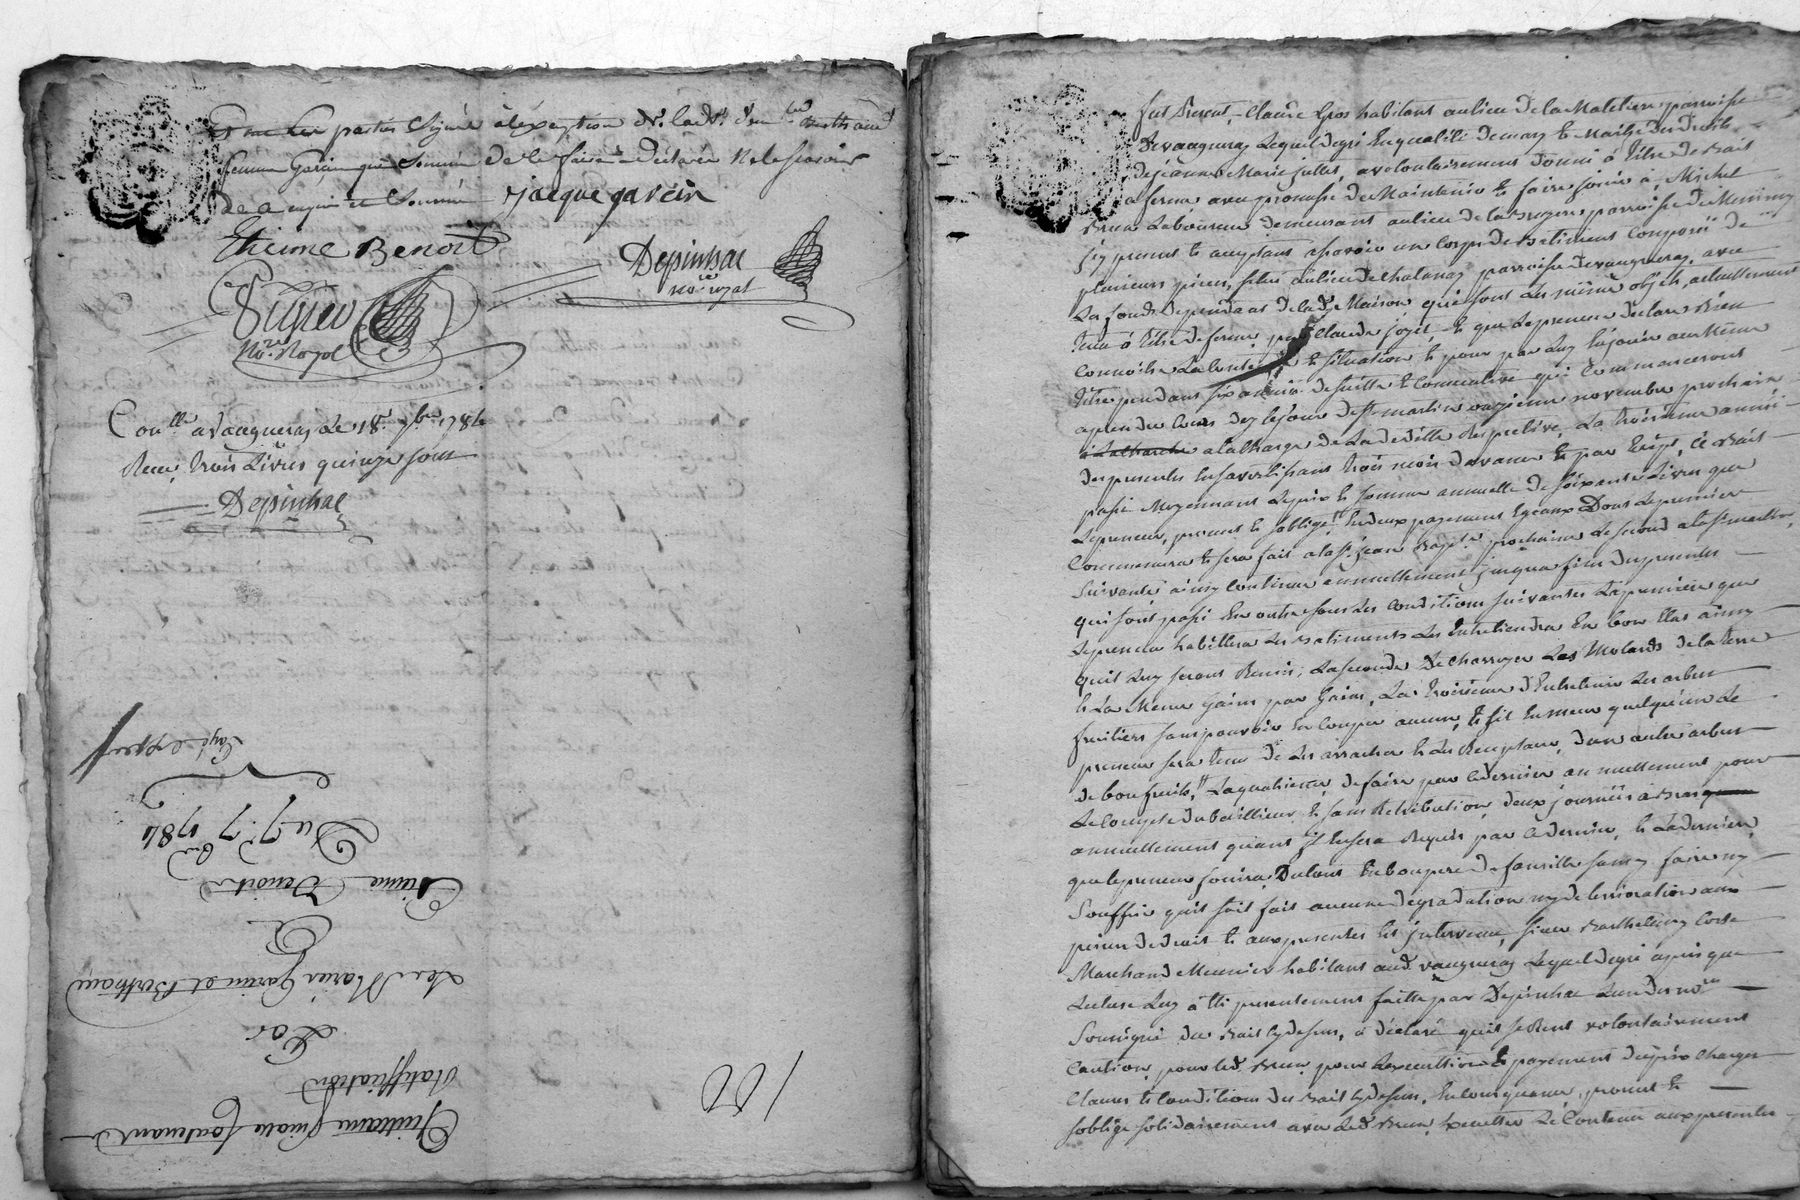 parties signé à l'exception de lad.
femme Garcin qui Sommée de le faire a déclaré ne le savoir
de ce enquis et Sommée Jacque garcin
Etienne Benoit
Depinhac
no.re royal
no.re Royal
Con.lle a Vaugneray Le 18. 7bre 1784
Recu trois Livres quinze sous
Depinhac
Du 7. 7bre 1784
Etienne Benoit
Et
Les Mariés Garcin et Bertrand
Par
Ratiffication
Quittance finale contenant
100
fut Present, Claude habitant au lieu de la Maletiere parroisse
de vaugneray Lequel de gré En qualité de mary & Maître des Droits
de jeanne Marie jullet, a volontairement donné à titre de Bail
a ferme avec promesse de Maintenir & faire jouir à Michel
Brun Laboureur demeurant au lieu de la Bruyere parroisse de Messimy
icy present & acceptant asçavoir un Corps de Batiment Composé de
plusieurs pieces, situé au lieu de Chalanay parroisse de vaugneray, avec
Les fonds Dependant de lad. Maison, qui sont Les même objets actuellement
tenu à titre de ferme par Claude joyet & que Le preneur declare Bien
Connoitre La Contenue & situation & pour par Luy En jouir au Même
titre pendant six années de suitte & Consecutive qui Commenceront
a prendre Cours dez le jour de St martin onzieme novembre prochain
a la Charge de La deditte Respective La troisieme année
des presentes En s'avertissant trois mois d'avance & par Ecrit, Ce Bail
passé Moyennant Le prix & somme annuelle de soixante Livres que
Le preneur, promet & s'oblige En deux payement Egeaux Dont Le premier
Commencera & sera fait a la St jean Bapte prochaine Le second a la St martin
suivante ainsy Continuer annuellement jusqua fin des presentes
qui sont passé En outre sous Les Conditions suivantes La premiere que
Le preneur habittera Les Batiments Les Entretiendra En bon Etat ainsy
qu'il Luy seront Remis, La seconde De Charroyer Les Molards de la terre
fruitiers sans pouvoir En Couper aucun, & s'il En meur quelqu'un Le
preneur sera tenu de Les arracher & Les Remplacer, d'un autre arbre
de bon fruits, La quatrieme, de faire par Ce dernier annuellement pour
Le Compte du bailleur & sans Retribution, deux journées a Bras
annuellement quand il En sera Requis par Ce dernier, & La derniere,
que le preneur jouira Du tout En bon pere de famille sans y faire ny
Souffrir qu'il soit fait aucune degradation ny deterrioration aux
peines de droit & aux presentes Est intervenu, sieur Barthellemy Coste
Marchand Meunier habitant aud. vaugneray Lequel de gré après que
Lecture Luy à Eté presentement faitte par Depinhac L'un des no.res
Soussigné du Bail cy dessus, à déclaré qu'il se Rend volontairement
Caution, pour led. Brun pour L'execution & payement du prix Charges
Clauses & Conditions du Bail cy dessus, En Consequence, promet &
s'oblige solidairement avec Led. Brun, Executter Le Contenu aux presentes